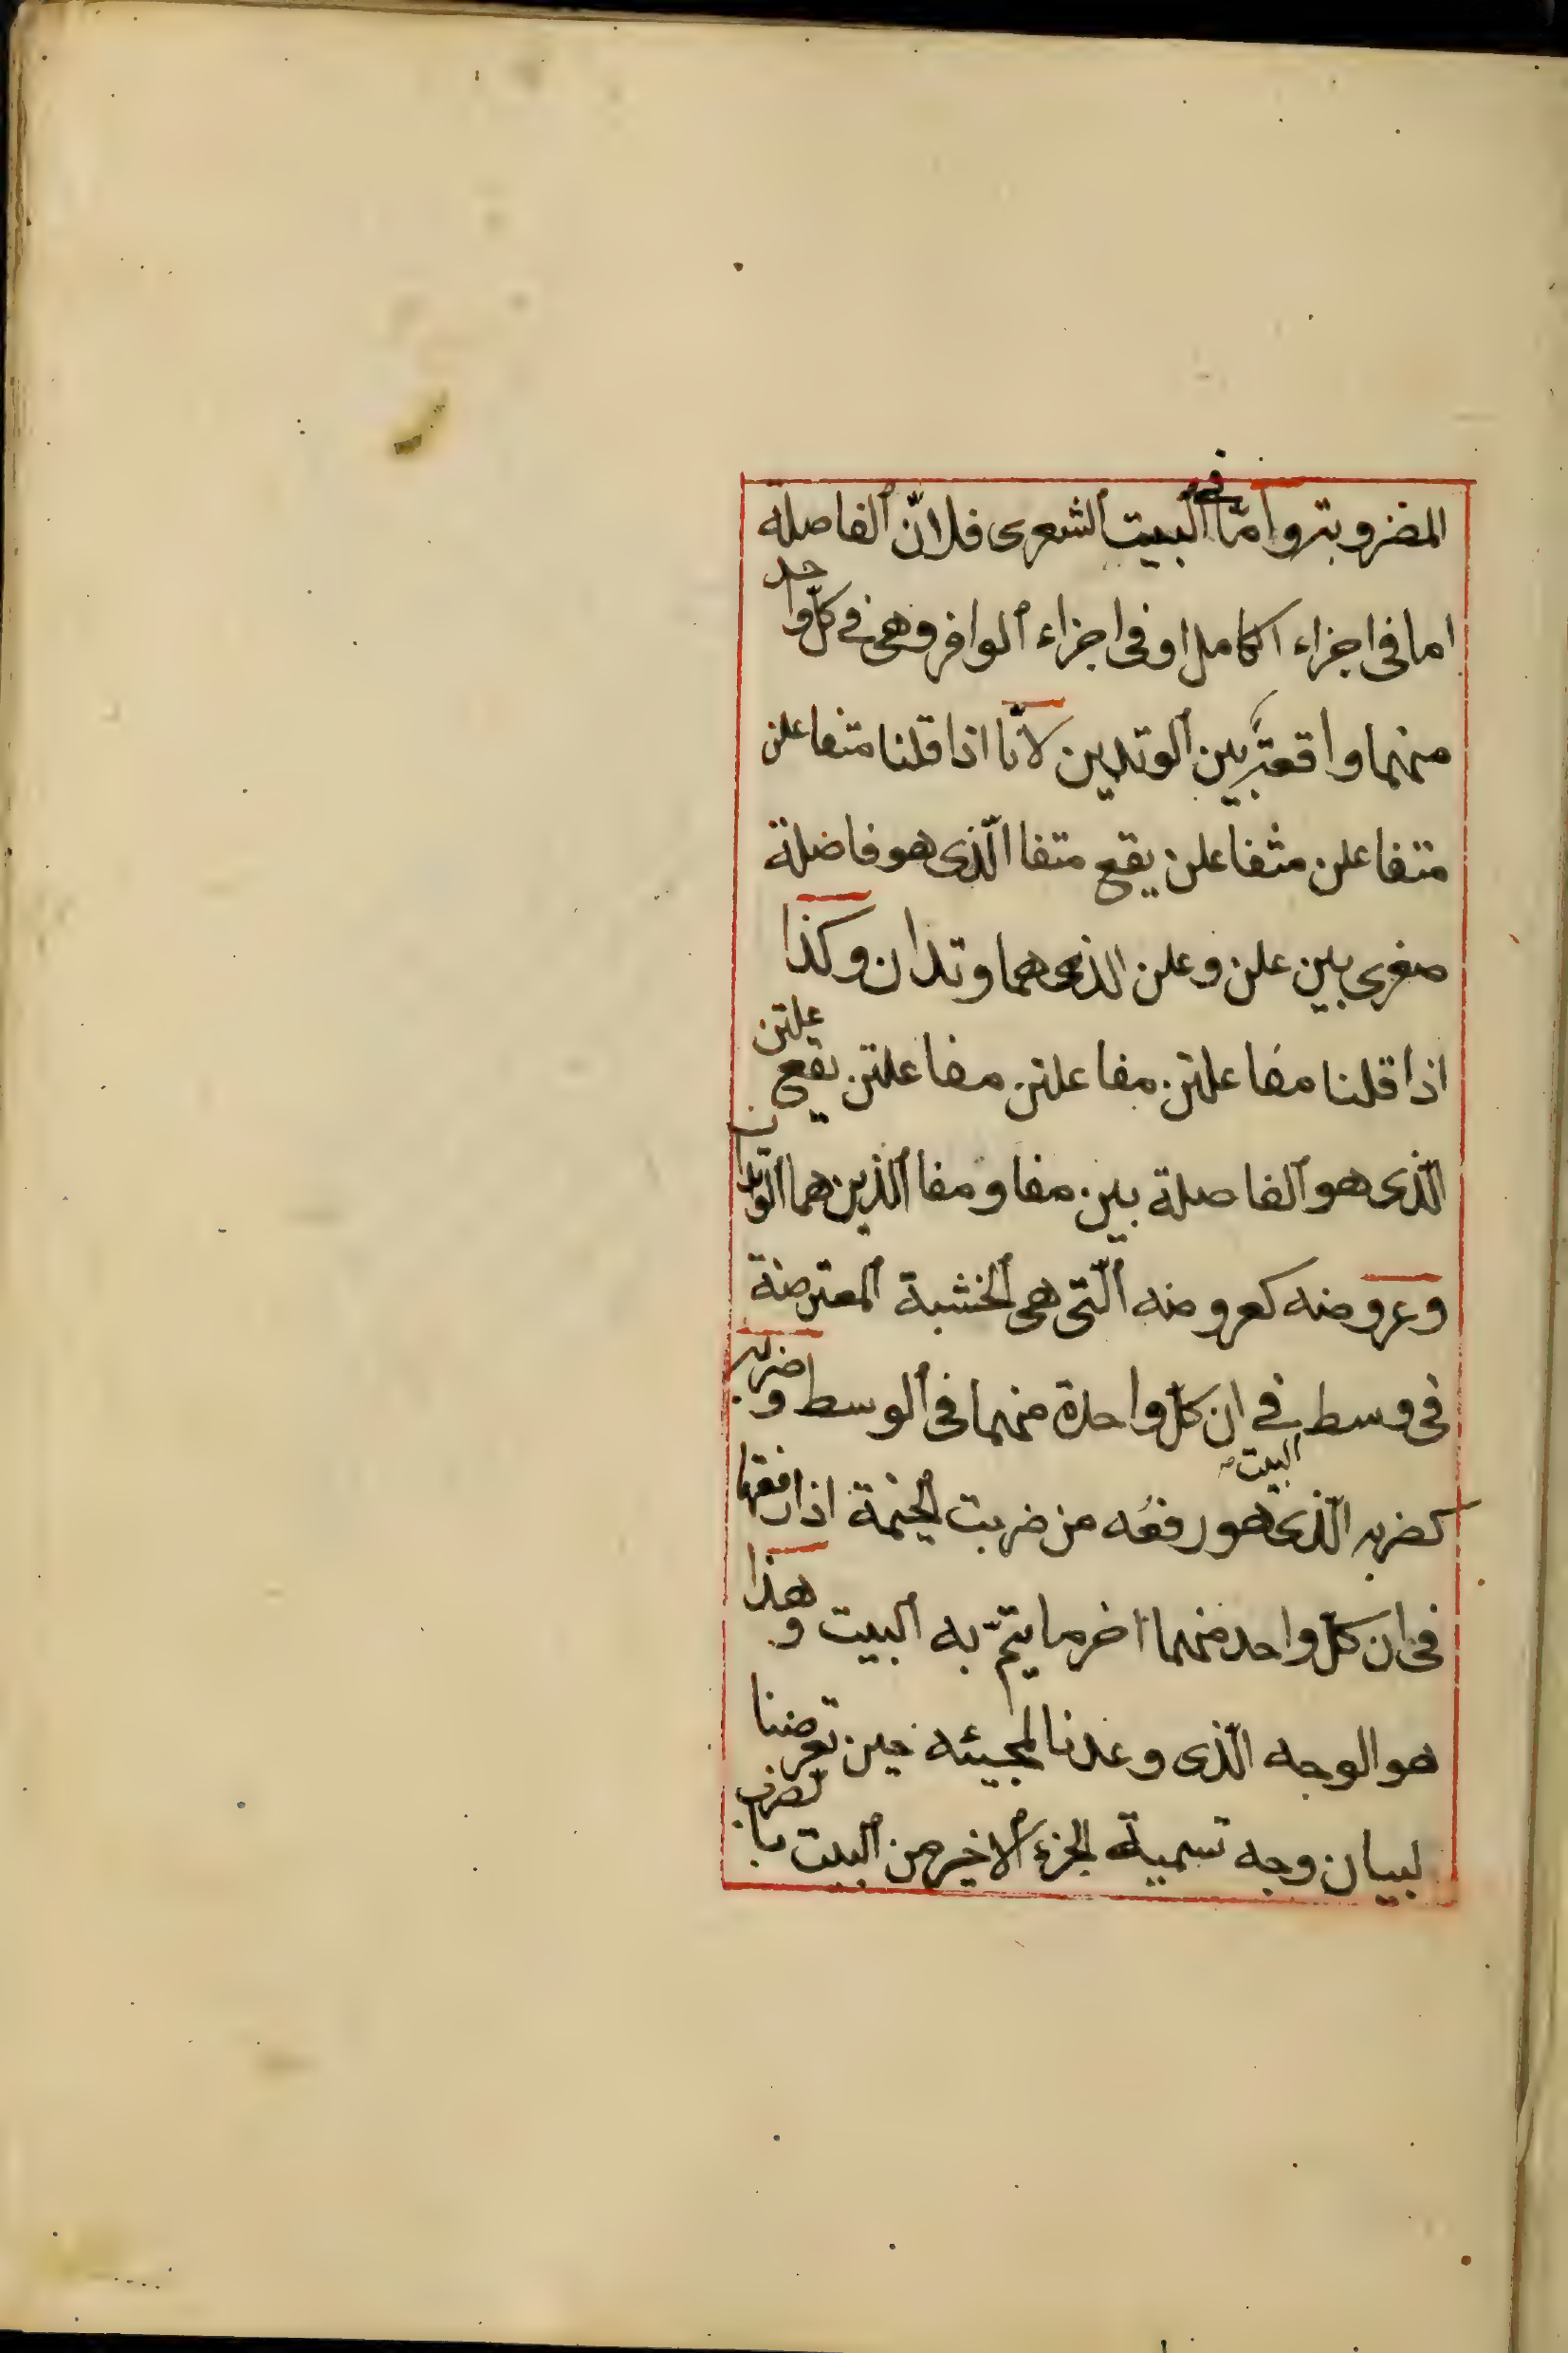 المضروبة وامّا في البيت الشعرى فلانّ الفاصلة
اما فى اجزاء الكامل او فى اجزاء الوافر وهى فى كلّ واحد
منهما واقعة بين الوتدين لانّا اذا قلنا متفاعلن
متفاعلن متفاعلن يقع متفا الّذى هو فاضلة
صغرى بين علن وعلن الذى هما وتدان وكذا
اذا قلنا مفاعلتن مفاعلتن مفاعلتن يقع علتن
الّذى هو الفاصلة بين مفا ومفا الّذين هما الوتدان
وعروضه كعروضه الّتى هى الخشبة المعترضة
فى وسط البيت فى ان كلّ واحدة منهما فى الوسط وضربه
كضربه الّذى هو رفعُه من ضربت الخيمة اذا رفعتها
فى ان كلّ واحد منهما اخر ما يتمّ به البيت وهذا
هو الوجه الّذى وعدنا لمجيئه حين تعرضنا
لبيان وجه تسمية الجزء الاخير من البيت بالضرب